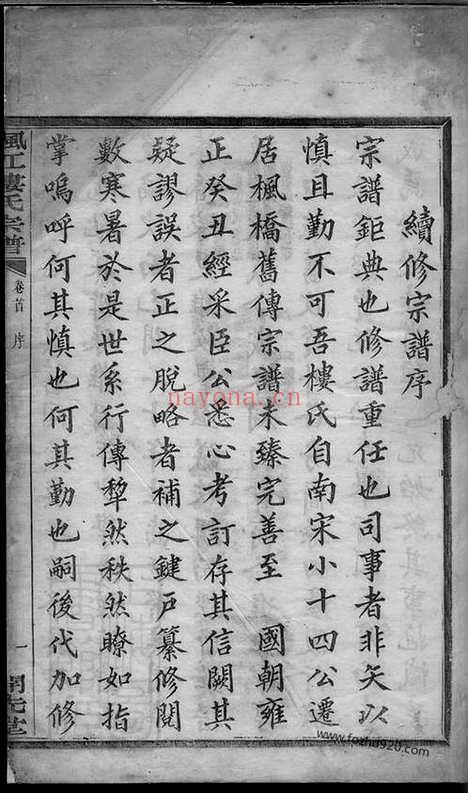 續修宗譜序
宗譜鉅典也修譜重任也司事者非矢以
慎且勤不可吾樓氏自南宋小十四公遷
居楓橋舊傳宗譜未臻完善至　國朝雍
正癸丑經采臣公悉心考訂存其信闕其
疑謬誤者正之脫略者補之鍵戶纂修閱
數寒暑於是世系行傳犂然秩然瞭如指
掌嗚呼何其慎也何其勤也嗣後代加修
樓氏宗譜
卷首　序
一
nayona.cn
www.fozhu920.com